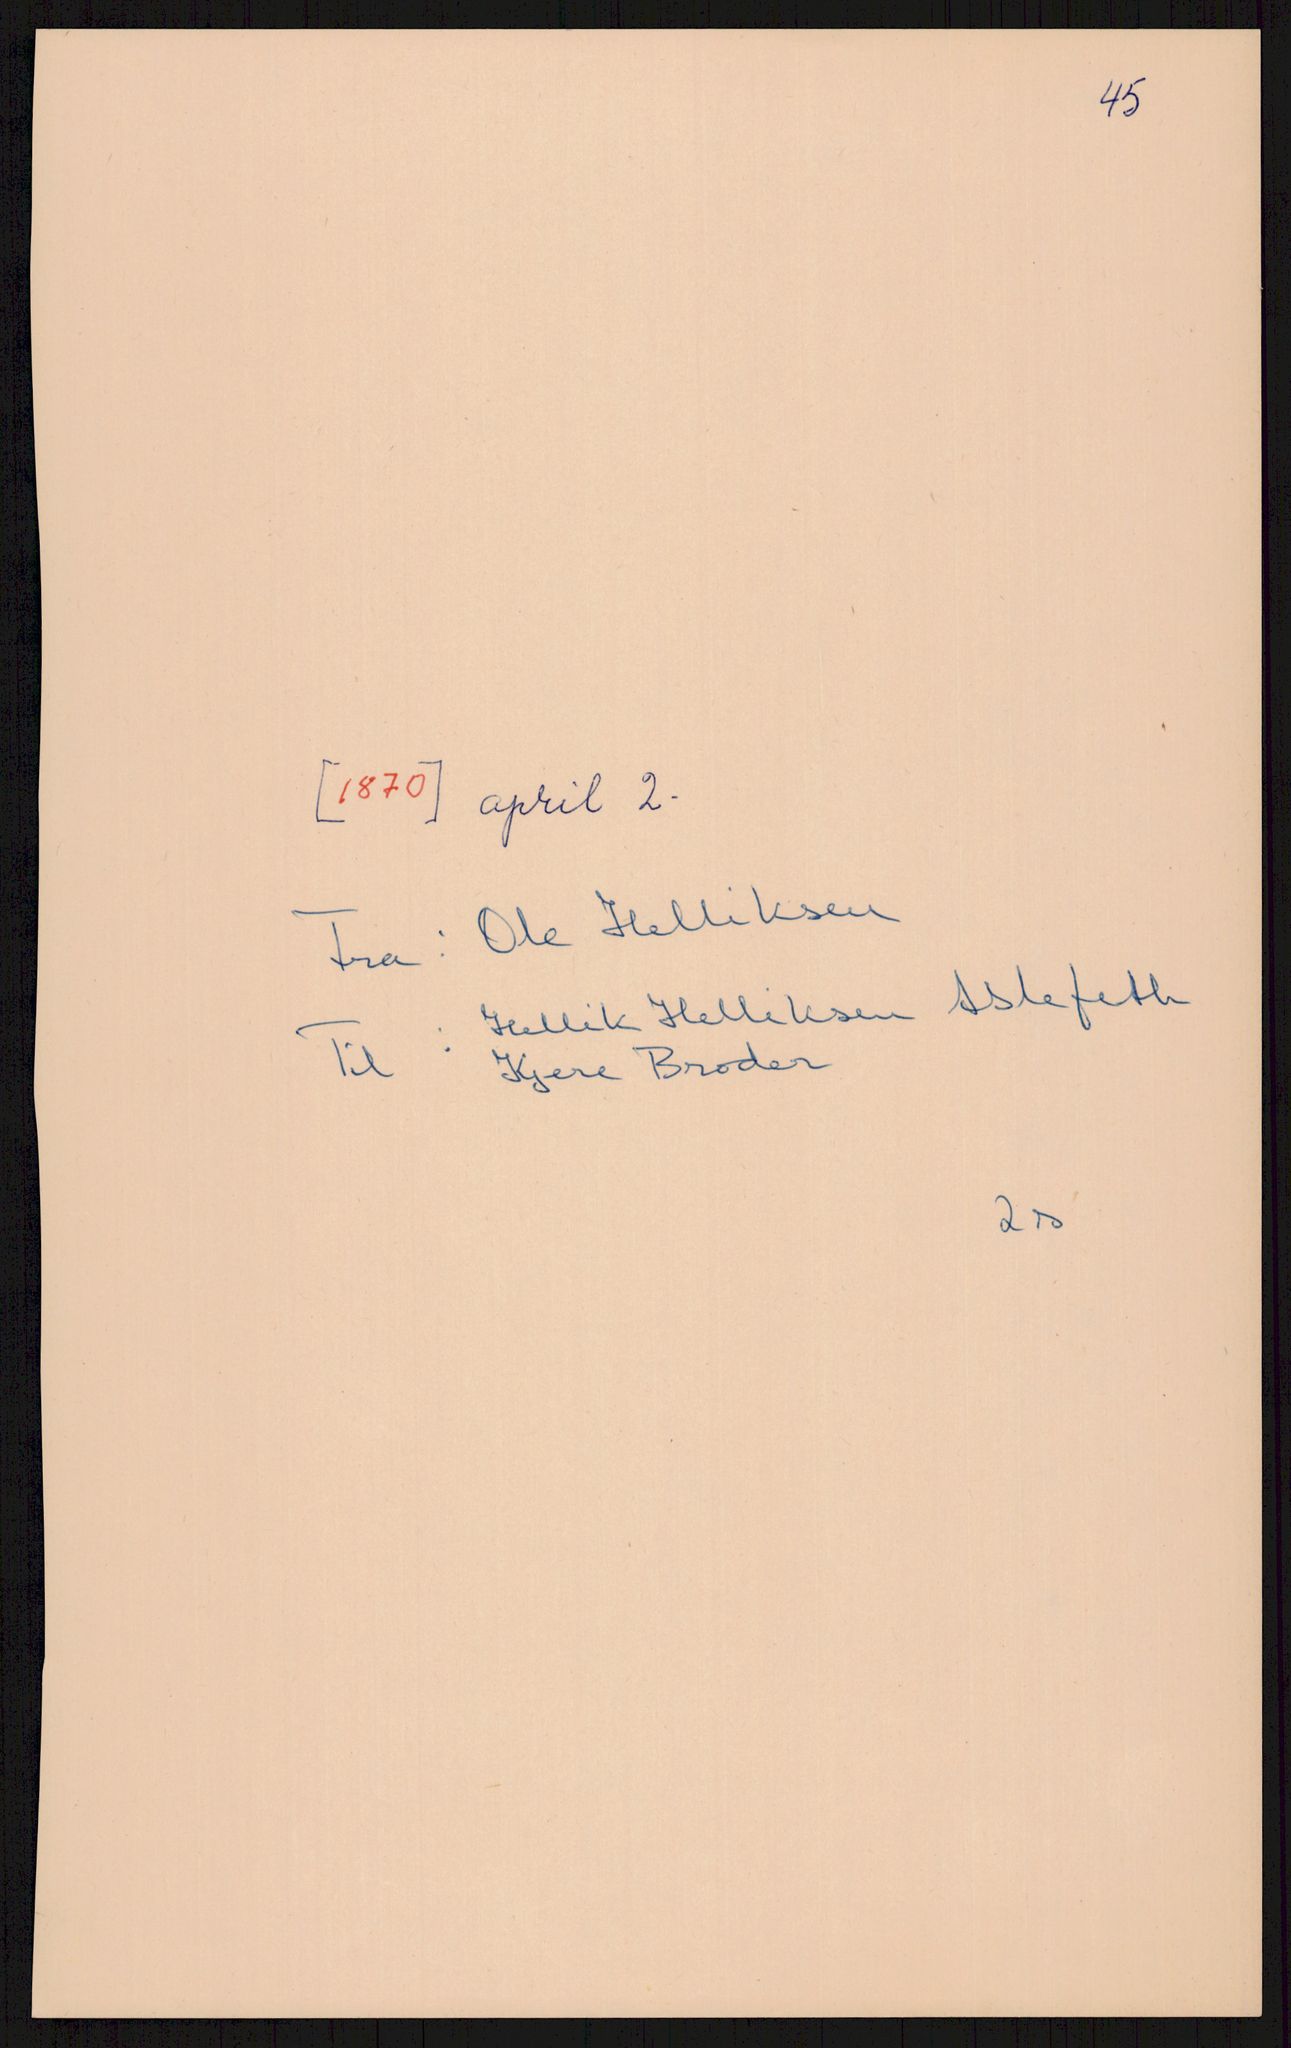 45
[1870] april 2.
Fra : Ole Helliksen
Til : Hellik Helliksen Aslefeth
Kjere Broder
2 s